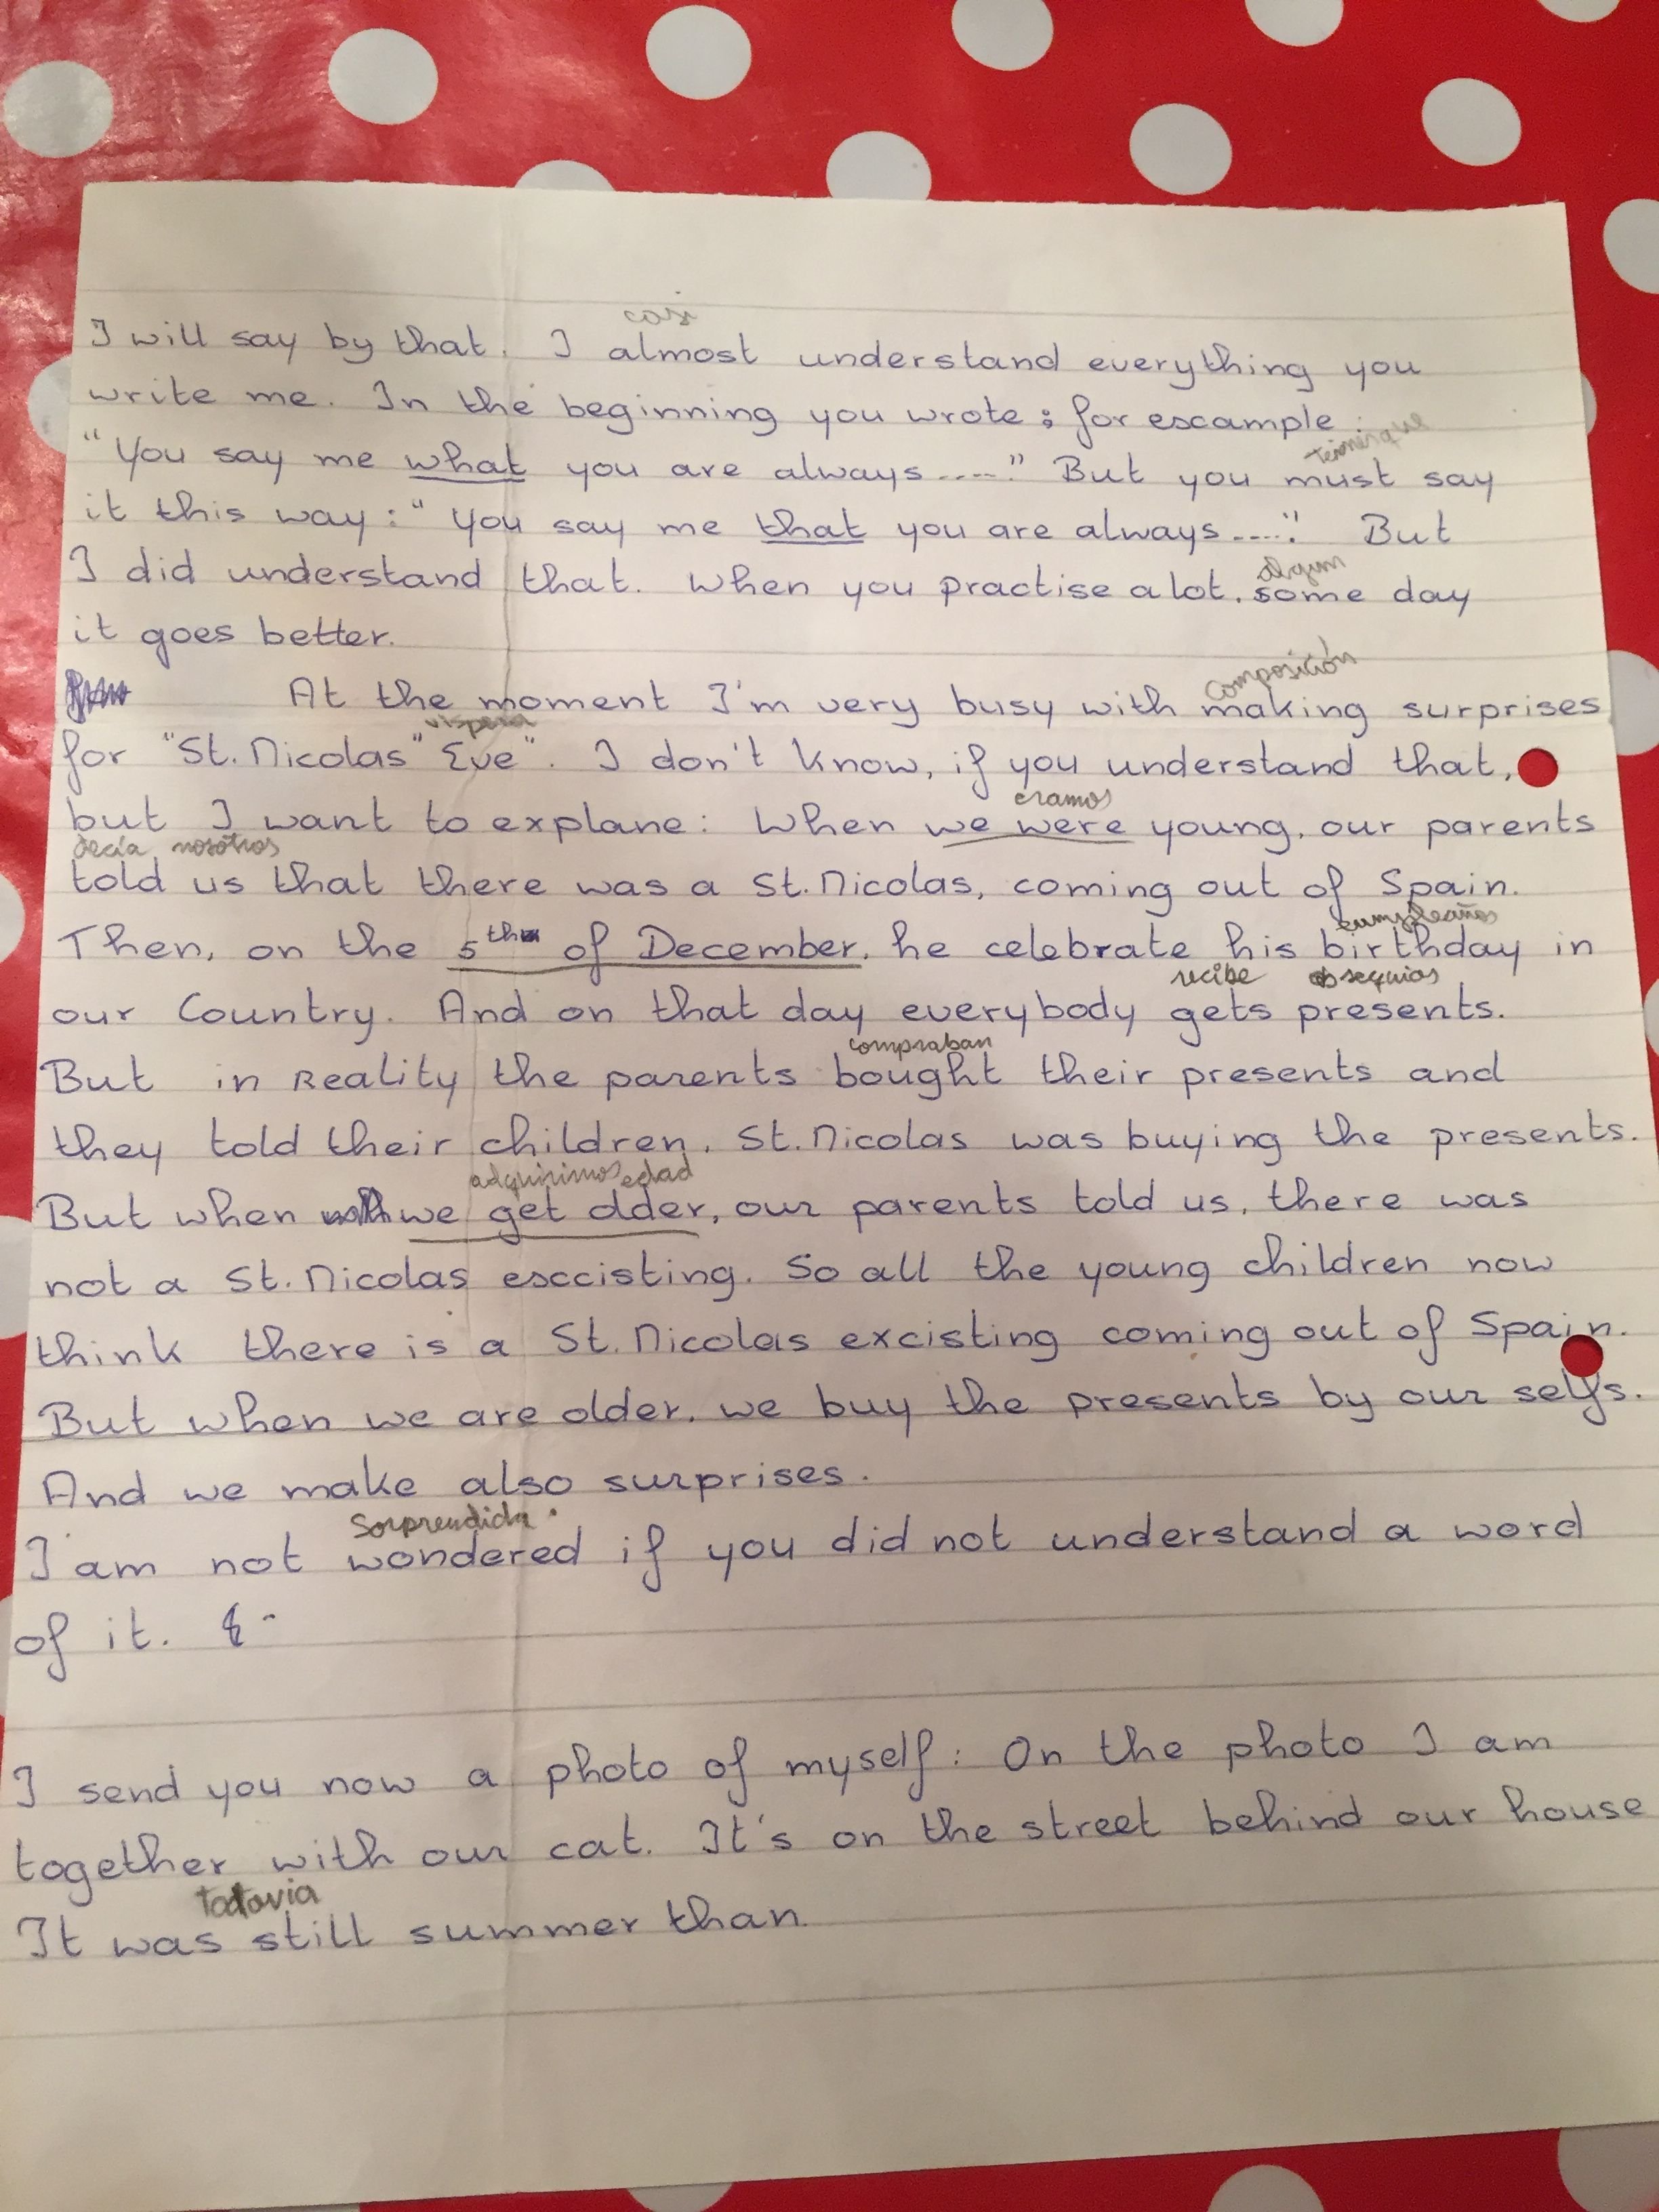 casi
I will say by that. I almost understand everything you
write me. In the beginning you wrote ; for escample :
"You say me what you are always....." But you must say
it this way : "You say me that you are always....." But
algun
I did understand that. When you practise a lot, some day
it goes better.
composición
At the moment I'm very busy with making surprises
vispera
for "St. Nicolas" Eve". I don't know, if you understand that,
eramos
but I want to explane : When we were young, our parents
decía nosotros
told us that there was a St. Nicolas, coming out of Spain.
cumpleaños
Then, on the 5th of December, he celebrate his birthday in
recibe obsequios
our Country. And on that day everybody gets presents.
compraban
But in Reality the parents bought their presents and
they told their children, St. Nicolas was buying the presents.
adquirimos edad
But when we get older, our parents told us, there was
not a St. Nicolas esccisting. So all the young children now
think there is a St. Nicolas excisting coming out of Spain.
But when we are older, we buy the presents by our selfs.
And we make also surprises.
Sorprendida
I am not wondered if you did not understand a word
of it.
I send you now a photo of myself : On the photo I am
together with our cat. It's on the street behind our house
todavia
It was still summer than.